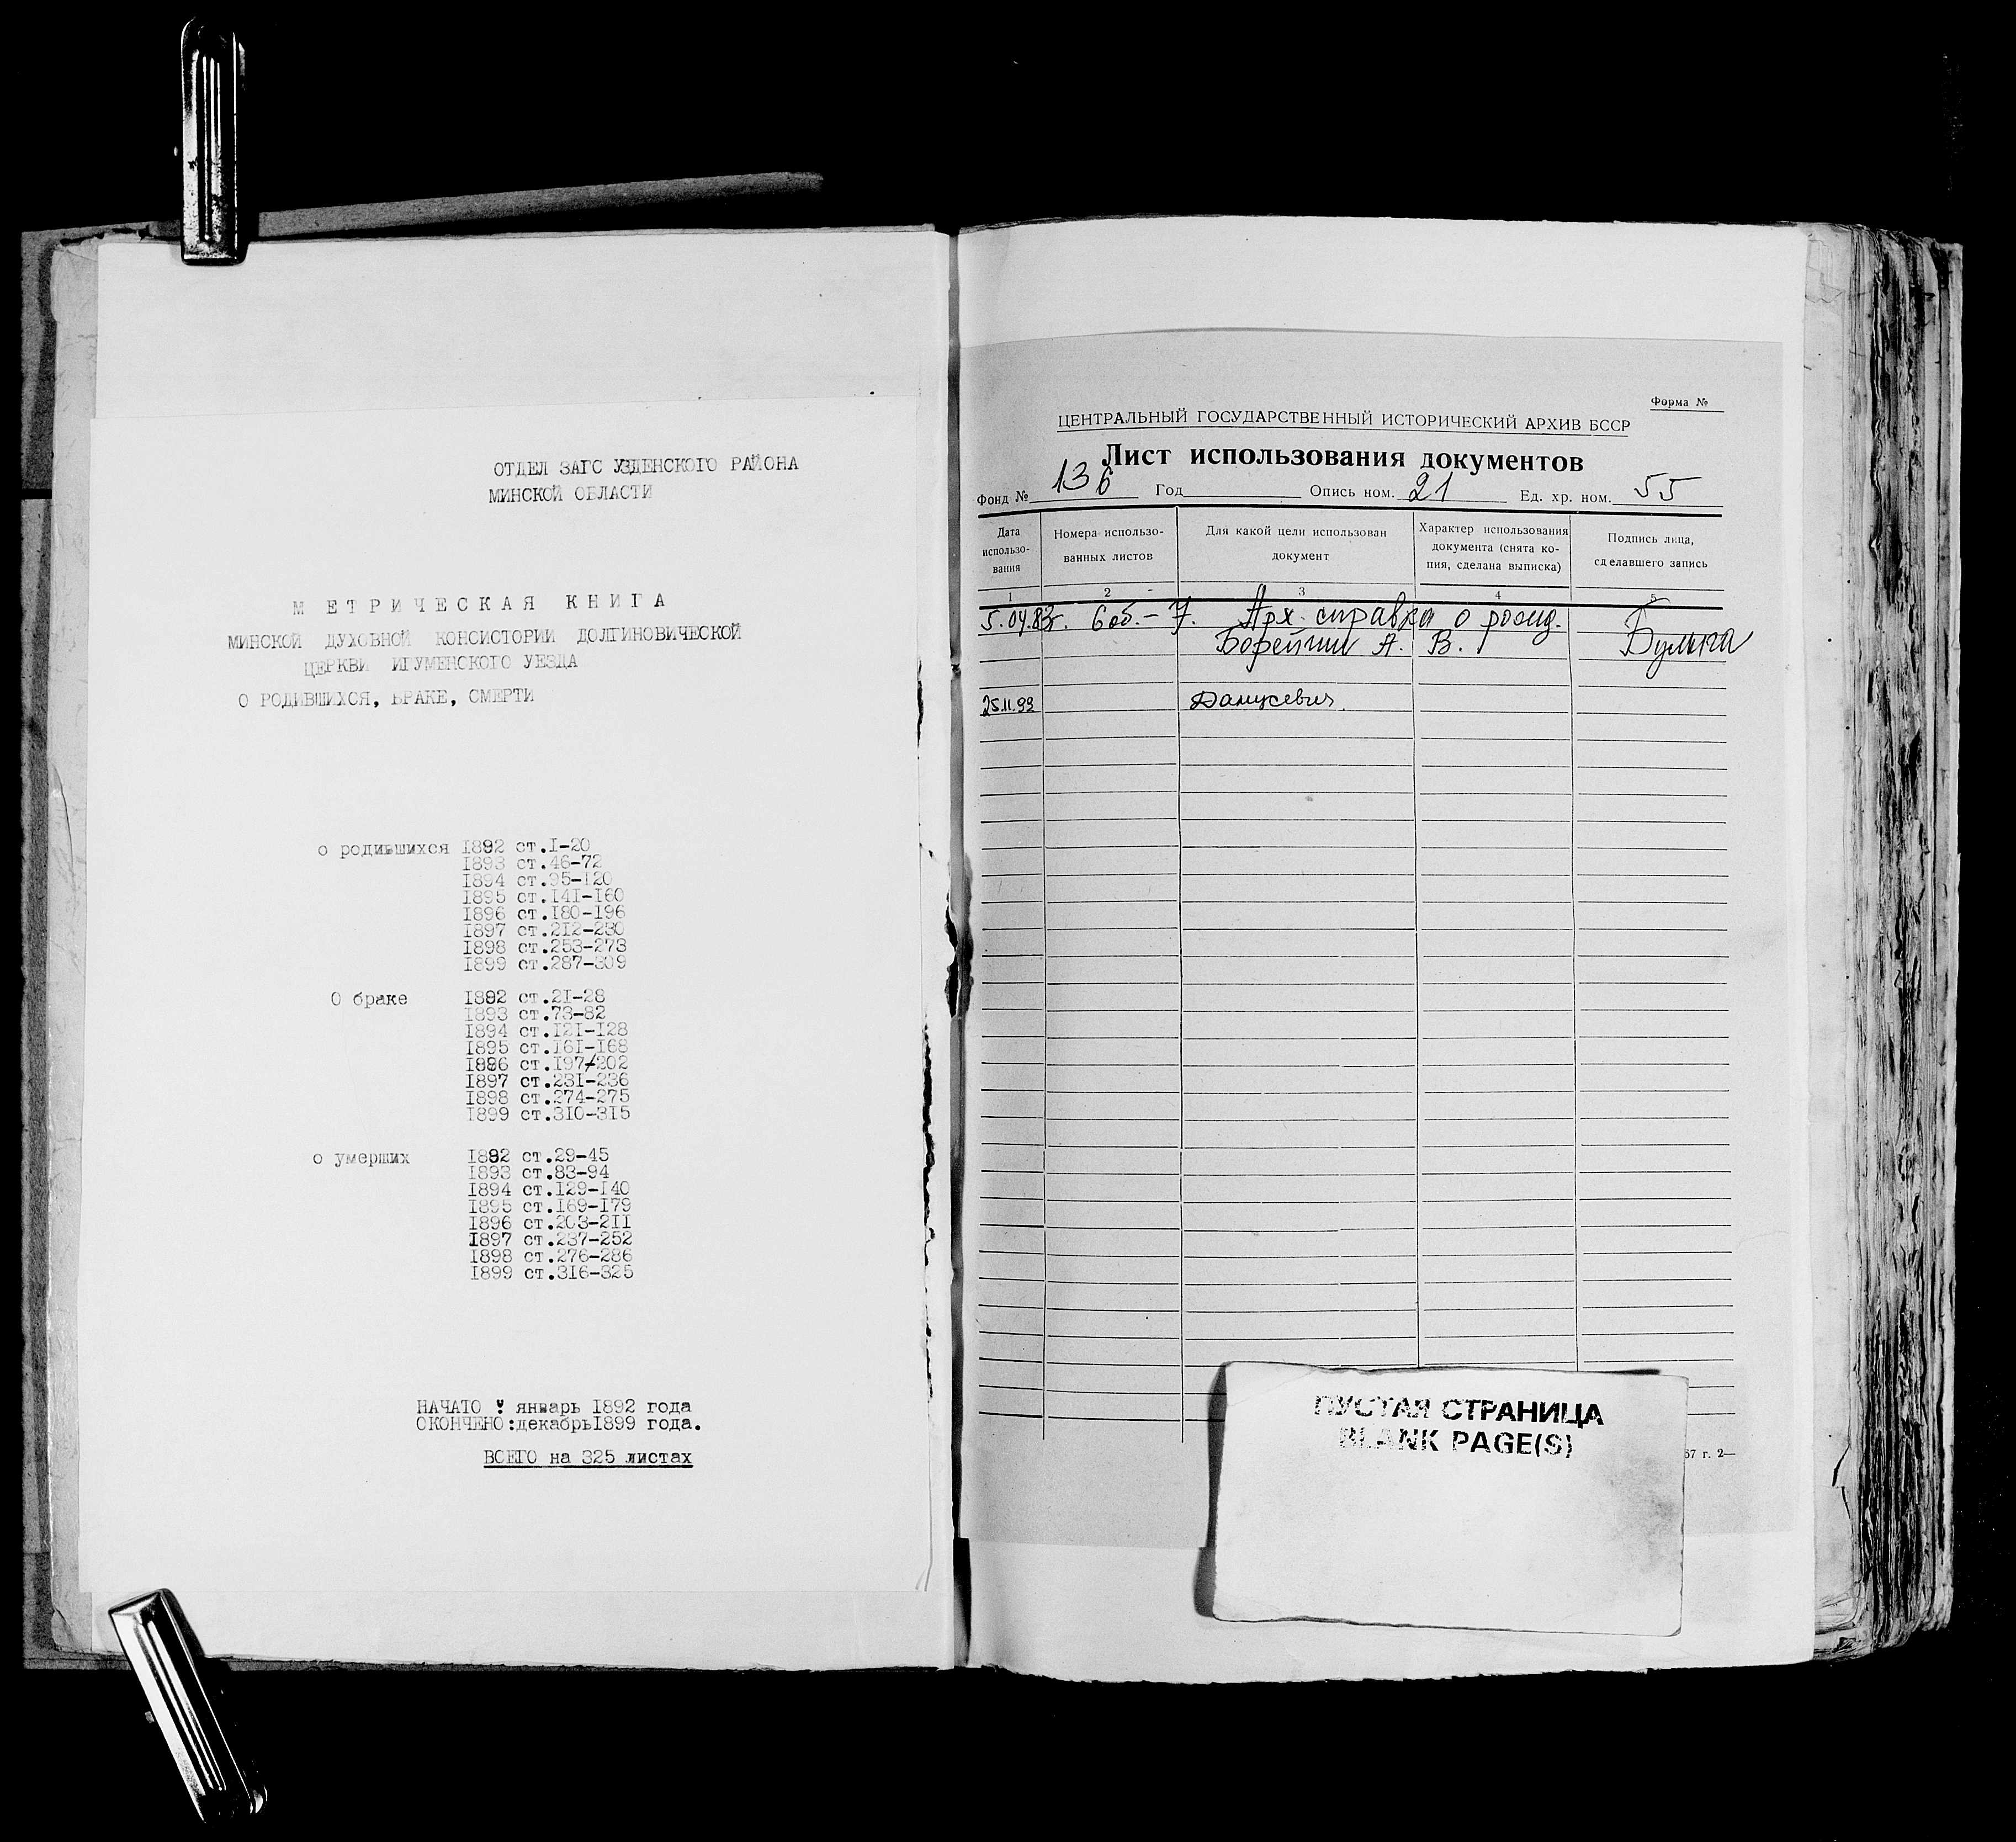 ОТДЕЛ ЗАГС УЗДЕНСКОГО РАЙОНА
МИНСКОЙ ОБЛАСТИ
М Е Т Р И Ч Е С К А Я К Н И Г А
МИНСКОЙ ДУХОВНОЙ КОНСИСТОРИИ ДОЛГИНОВИЧЕСКОЙ
ЦЕРКВИ ИГУМЕНСКОГО УЕЗДА
О РОДИВШИХСЯ, БРАКЕ, СМЕРТИ
о родившихся 1892 ст.1-20
1893 ст.46-72
1894 ст.95-120
1895 ст.141-160
1896 ст.180-196
1897 ст.212-230
1898 ст.253-273
1899 ст.287-309
О браке 1892 ст.21-28
1893 ст.73-82
1894 ст.121-128
1895 ст.161-168
1896 ст.197-202
1897 ст.231-236
1898 ст.274-275
1899 ст.310-315
о умерших 1892 ст.29-45
1893 ст.83-94
1894 ст.129-140
1895 ст.169-179
1896 ст.203-211
1897 ст.237-252
1898 ст.276-286
1899 ст.316-325
НАЧАТО : январь 1892 года
ОКОНЧЕНО:декабрь1899 года.
ВСЕГО на 325 листах
Форма №
ЦЕНТРАЛЬНЫЙ ГОСУДАРСТВЕННЫЙ ИСТОРИЧЕСКИЙ АРХИВ БССР
Лист использования документов
Фонд № 136 Год Опись ном. 21 Ед. хр. ном. 55
Дата использо-вания
Номера использо-ванных листов
Для какой цели использован документ
Характер использования документа (снята ко-пия, сделана выписка)
Подпись лица, сделавшего запись
1 2 3 4 5
5.04.83г. 6об.-7. Арх. справка о рожд.
А. В. Булыга
25.11.99
ПУСТАЯ СТРАНИЦА
BLANK PAGE(S)
67 г. 2—